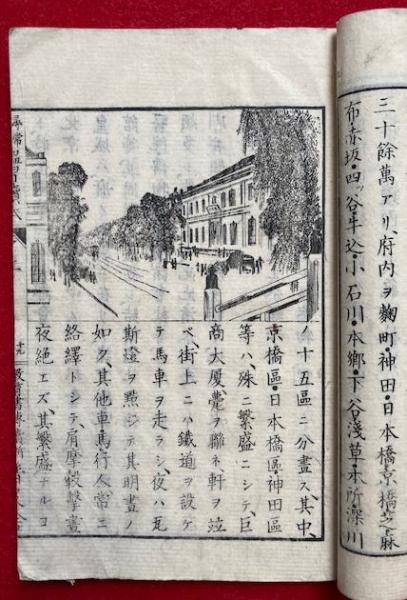 三十餘萬アリ、府内ヲ麴町・神田・日本橋・京橋・芝・麻
布・赤坂・四ッ谷・牛込・小石川・本鄕・下谷・淺草・本所・深川
ノ十五區ニ分畫ス、其中、
京橋區・日本橋區・神田區
等ハ、殊ニ繁盛ニシテ、巨
商大厦、甍ヲ聯ネ軒ヲ竝
ベ、街上ニハ鐵道ヲ設ケ
テ馬車ヲ走ラシ、夜ハ瓦
斯燈ヲ點ジテ其明晝ノ
如ク、其他車馬・行人常ニ
絡繹トシテ、肩摩轂擊晝
夜絶エズ、其繁盛ナルコ
十九